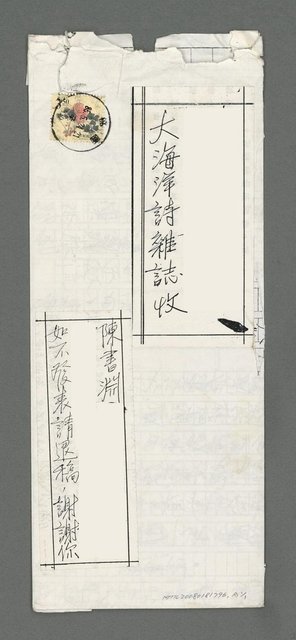 大海洋詩雜誌收
陳書淵
如不發表請退稿，謝謝你